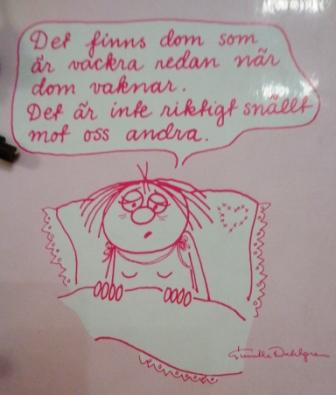 Det finns dom som
är vackra redan när
dom vaknar.
Det är inte riktigt snällt
mot oss andra.
Gunilla Dahlgren